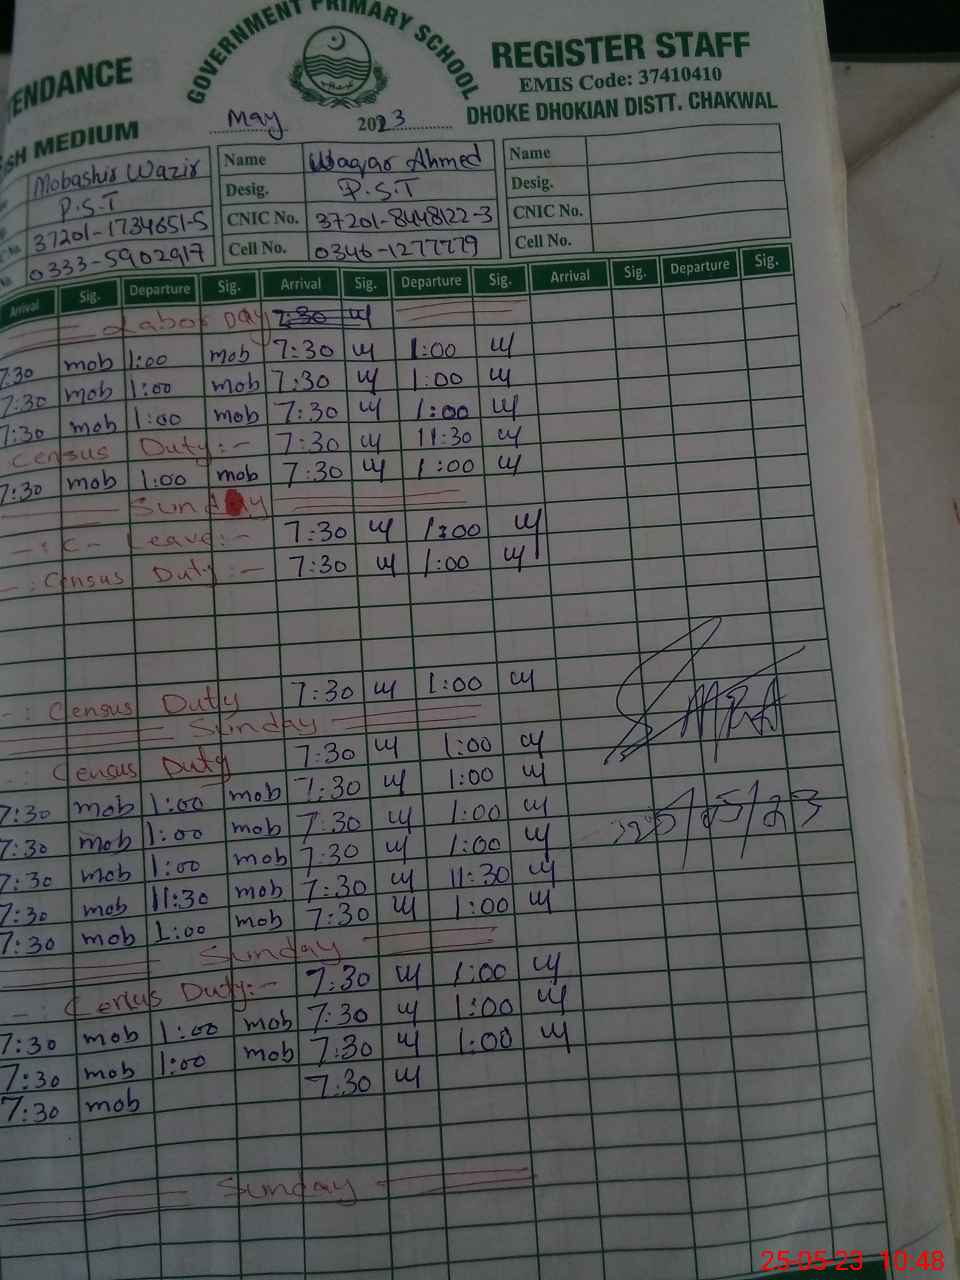 GOVERNMENT PRIMARY SCHOOL
TENDANCE REGISTER STAFF
EMIS Code: 37410410
SH MEDIUM DHOKE DHOKIAN DISTT. CHAKWAL
May 2023
Mobashir Wazir Name Waqar Ahmed Name
P.S.T Desig. P.S.T Desig.
37201-1734651-5 CNIC No. 37201-8448122-3 CNIC No.
0333-5902917 Cell No. 0346-1277779 Cell No.
Arrival Sig. Departure Sig. Arrival Sig. Departure Sig. Arrival Sig. Departure Sig.
Labor Day 7:30
7:30 mob 1:00 mob 7:30 1:00
7:30 mob 1:00 mob 7:30 1:00
7:30 mob 1:00 mob 7:30 1:00
Census Duty:- 7:30 11:30
7:30 mob 1:00 mob 7:30 1:00
Sunday
-: C- Leave:- 7:30 1:00
-: Census Duty:- 7:30 1:00
-: Census Duty 7:30 1:00
Sunday
-: Census Duty 7:30 1:00
7:30 mob 1:00 mob 7:30 1:00
7:30 mob 1:00 mob 7:30 1:00
7:30 mob 1:00 mob 7:30 1:00
7:30 mob 11:30 mob 7:30 11:30
7:30 mob 1:00 mob 7:30 1:00
Sunday
-: Census Duty:- 7:30 1:00
7:30 mob 1:00 mob 7:30 1:00
7:30 mob 1:00 mob 7:30 1:00
7:30 mob 7:30
Sunday
25/05/23
25-05-23 10:48